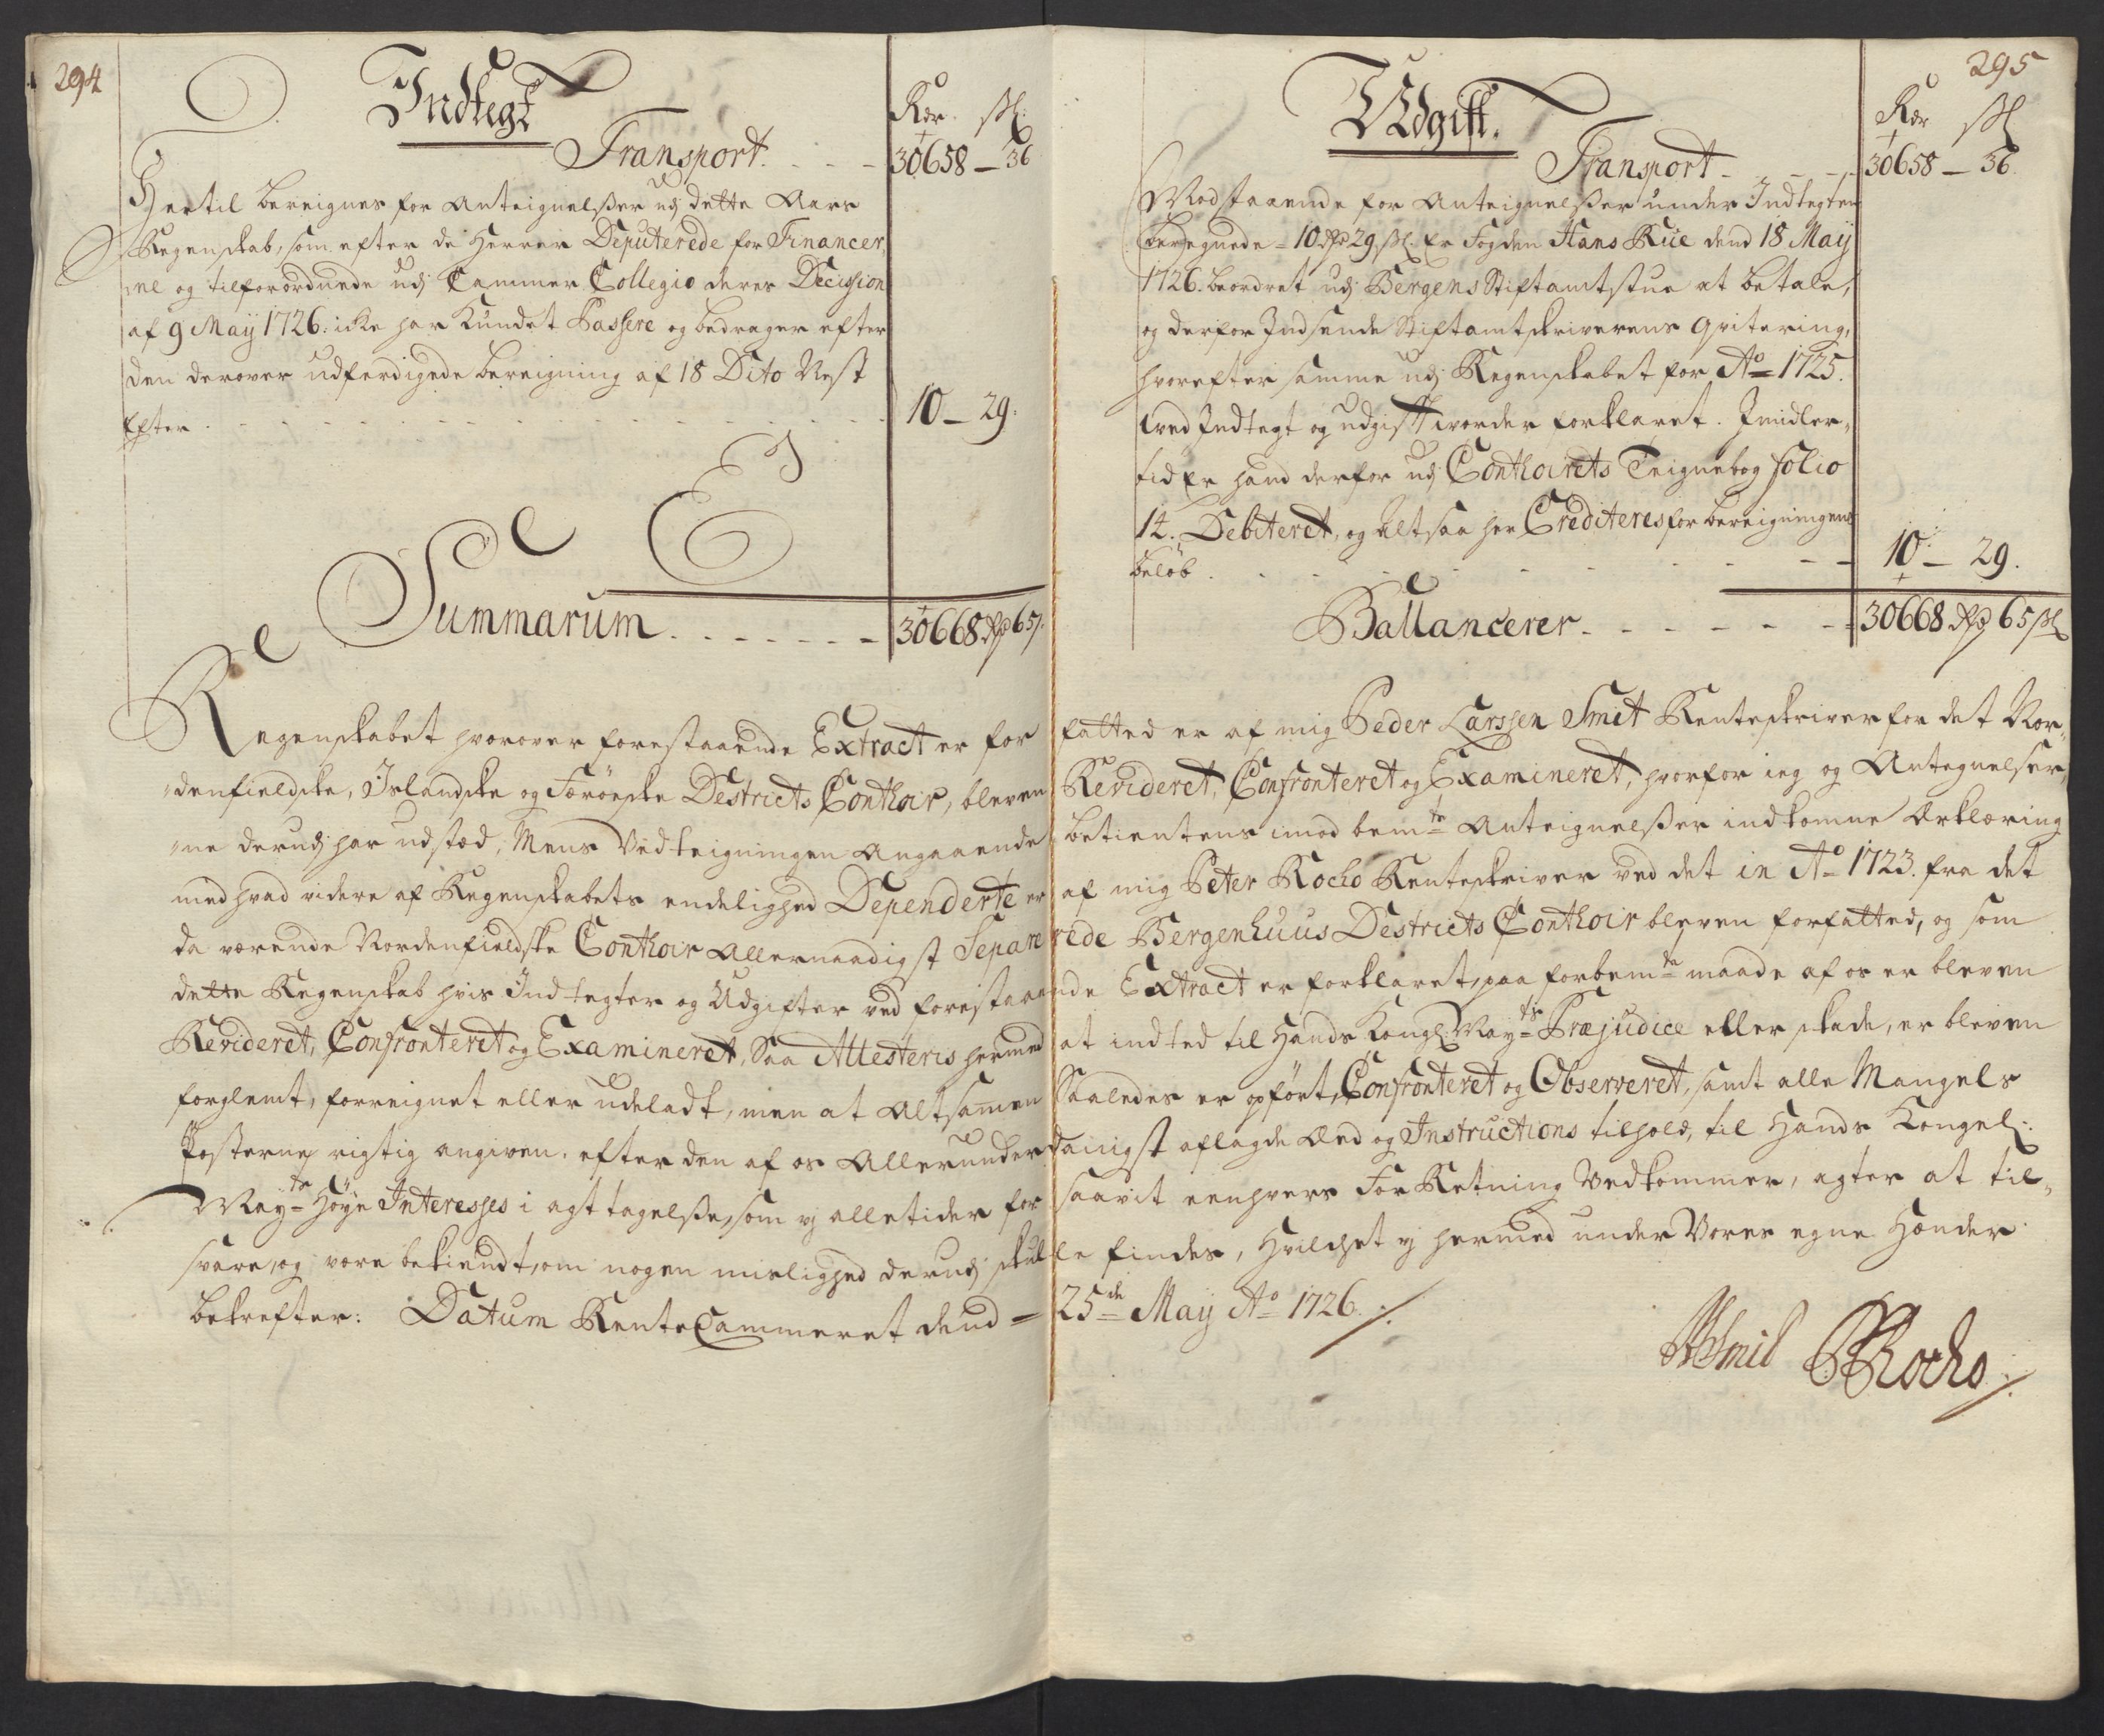 294
Indtegt
Rdr. ßl.
Transport. - - - 30658 - 36
Hertil bereignes for Anteignelßer udj dette Aars
Regenskab, som efter de Herrer Deputerede for Financer,
ne og tilforordnede udj Cammer Collegio deres Decission
af 9 Maÿ 1726. icke har Kundet Passere og bedrager efter
den derover udferdigede bereigning af 18 Dito Nest
Efter. - - - 10 - 29.
Summarum - - - 30668 Rdr 65ß.
295
Udgift.
Rdr ßl
Transport - - - 30658 - 36.
Modstaaende for Anteignelßer under Indtegten
beregnede - 10 Rdr 29 ßl. Er Fogden Hans Rüe dend 18 Maÿ
1726. beordret udj Bergens Stiftamtstue at betale,
og derfor Indsende Stiftamtskriverens Qvitering,
hvorefter samme udj Regenskabet for Ao 1725.
ved Indtegt og udgift vorder forklaret. Imidler,
tid Er hand derfor udj Conthoirets Teignebog folio
14. Debiteret, og altsaa her Crediteres for bereigningens
beløb. - - - 10 - 29.
Ballancerer - - - 30668 Rdr 65 ßl
Regenskabet hvorover forestaaende Extract er for fatted er af mig Peder Larssen Smit Renteskriver for det Nor,
denfieldske, Islandske og Færöeske Destricts Conthoir, bleven Revideret, Confronteret og Examineret, hvorfor ieg og Antegnelser,
ne derudj har udstæd, Mens Vedteigningen Angaaende betientens imod bemte Anteignelßer indkomne Erklæring
med hvad videre af Regenskabets endelighed Dependerte er af mig Peter Rocho Renteskriver ved det in Ao 1723. fra det
da værende Nordenfieldske Conthoir Allernaadigst Separe rede Bergenhuus Destricts Conthoir bleven forfatted, og som
dette Regenskab hvis Indtegter og Udgifter ved forestaaende Extract er forklaret, paa forbemte maade af os er bleven
Revideret, Confronteret og Examineret, Saa Attesteris hermed at indted til Hands Kongl Mayts Præjudice eller skade, er bleven
forglemt, forreignet eller udeladt, men at Altsamen Saaledes er opført, Confronteret og Observeret, samt alle Mangels
Posterne rigtig angiven. efter den af os Allerunderdanigst aflagde Eed og Instructions tilhold, til Hands Kongel:
Mayts Høÿe Interesses i agt tagelße, som vj alletider for saavit eenhvers Forretning Vedkommer, agter at til,
svare, og være bekiendt, om nogen mislighed derudj skulle findes, Hvilchet vj hermed under Vores egne Hænder
bekrefter: Datum Rente Cammeret dend = 25de Maÿ Ao 1726.
PLSmit PRocho